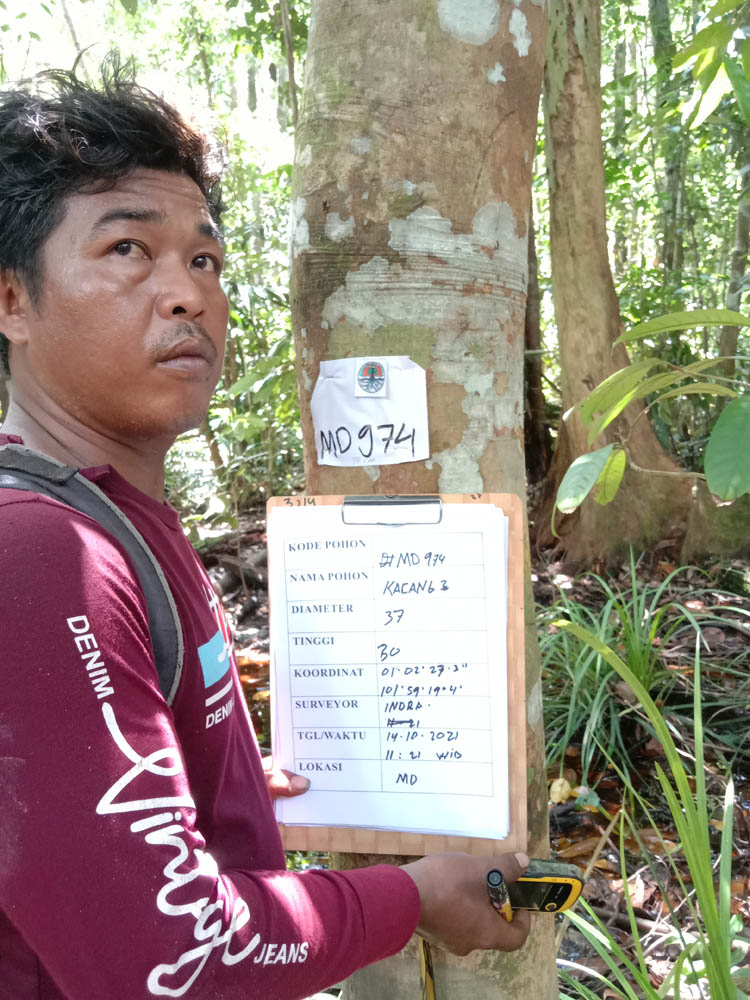 MD 974
KODE POHON MD 974
NAMA POHON KACANG 3
DIAMETER 37
TINGGI 30
KOORDINAT 01·02'27·3"
101'59·19·4'
SURVEYOR INDRA·
TGL/WAKTU 14·10·2021
11:21 WIB
LOKASI MD
DENIM
JEANS
DENIM